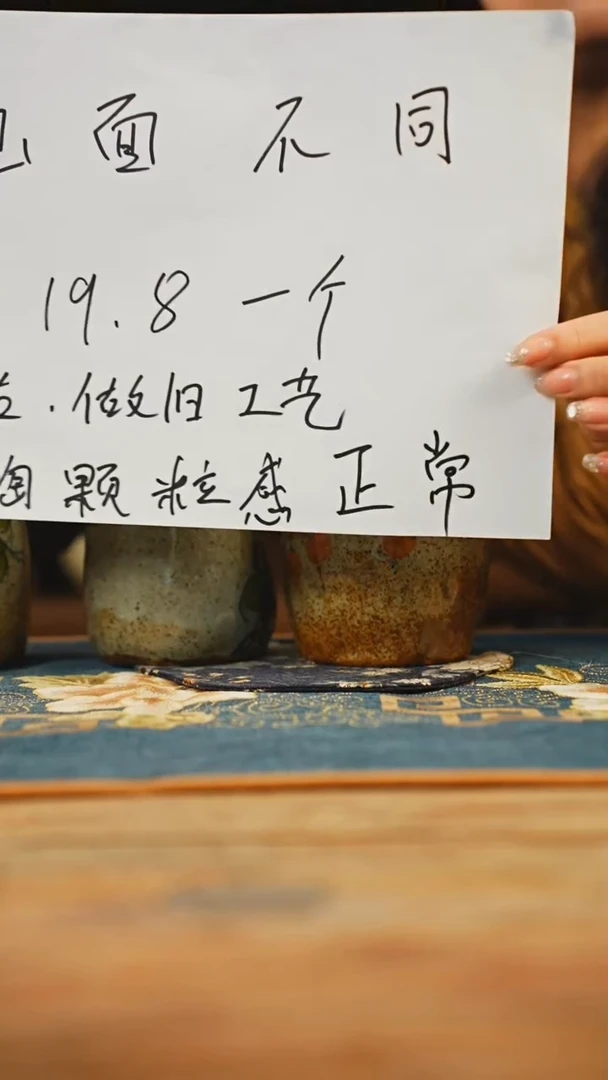 面不同
19.8一个
.做旧工艺
陶颗粒感正常